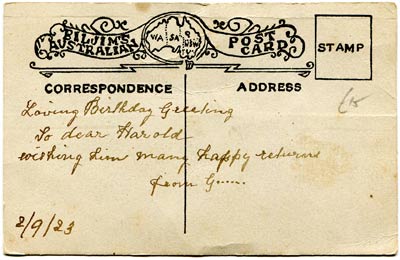 PILJIM'S
AUSTRALIAN
WA SA Q NSW V
POST
CARD
STAMP
CORRESPONDENCE
ADDRESS
Loving Birthday Greeting
To dear Harold
wishing him many happy returns
from
2/9/23